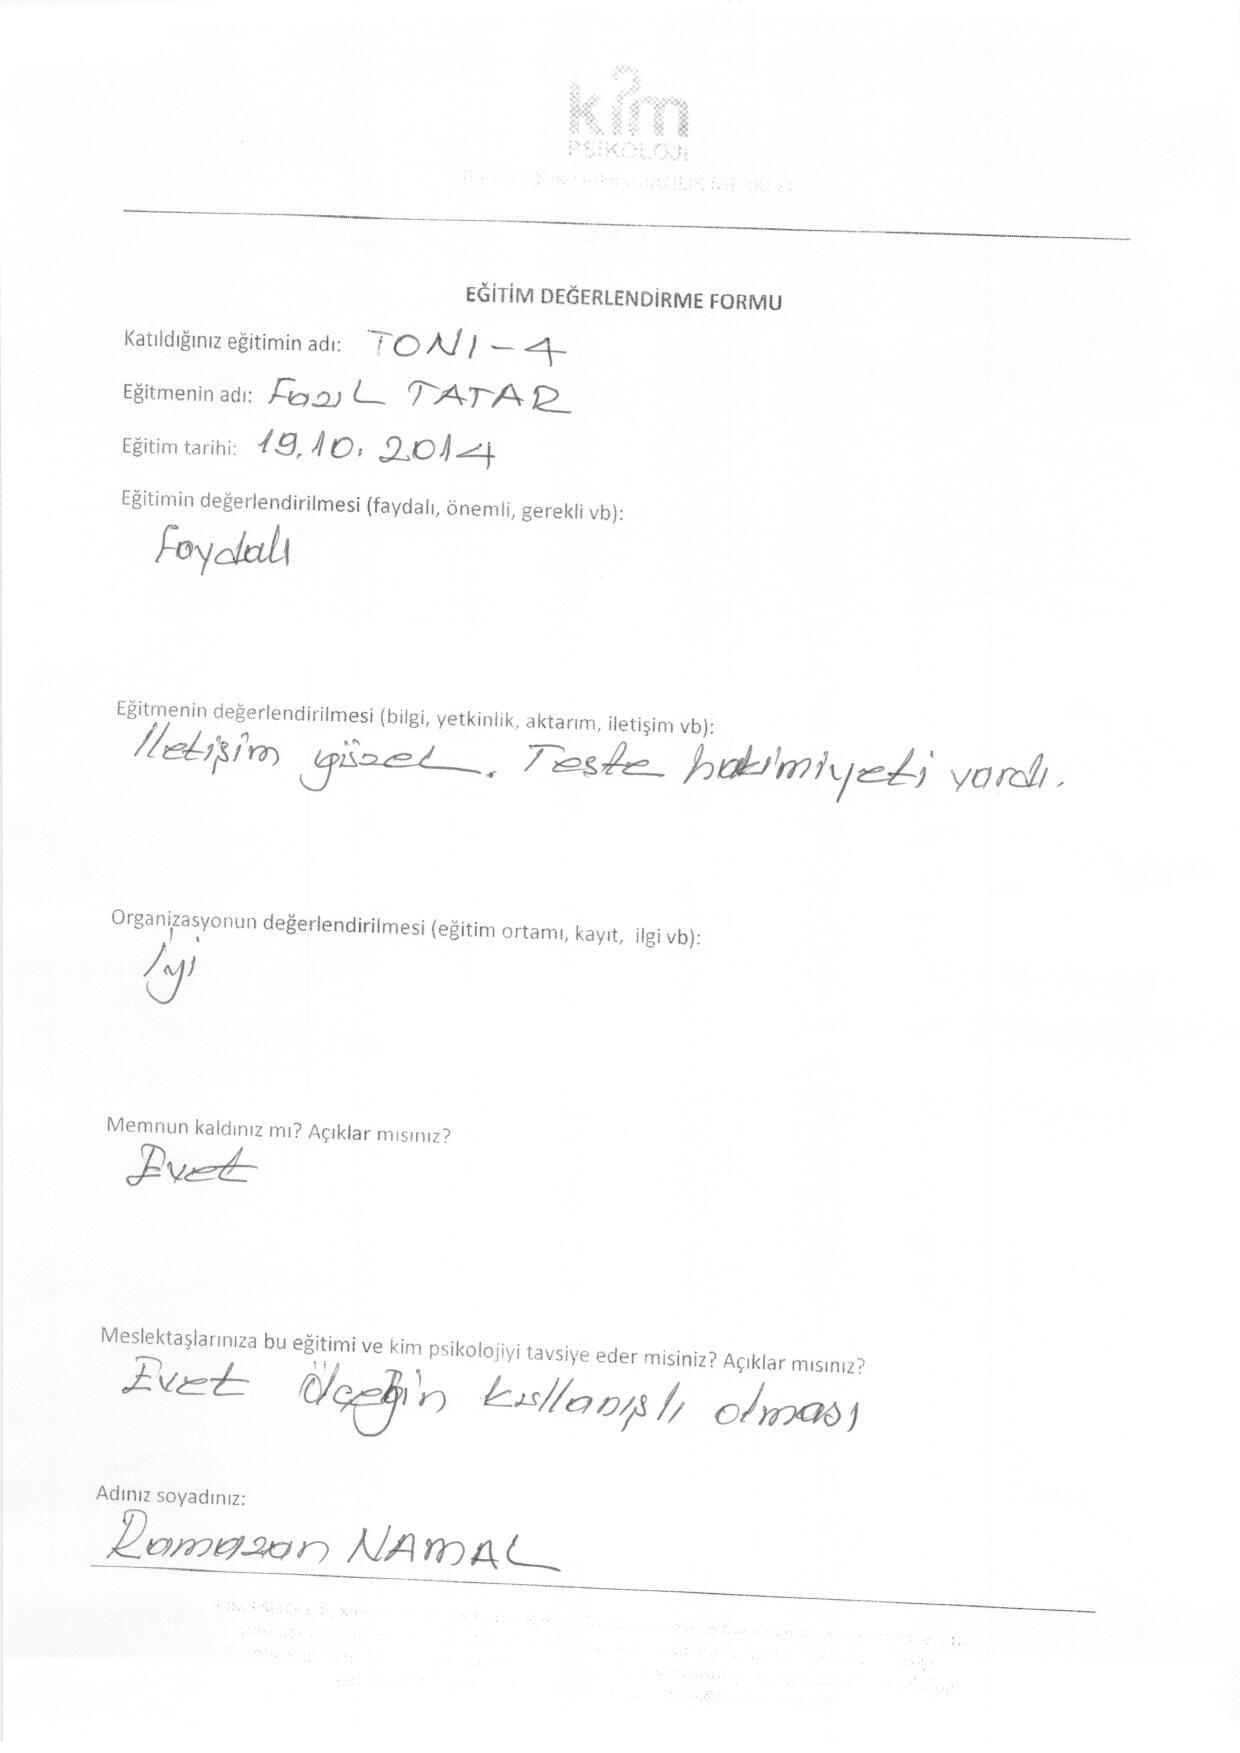 kim
PSİKOLOJİ
EĞİTİM DEĞERLENDİRME FORMU
Katıldığınız eğitimin adı: TONI-4
Eğitmenin adı: Fazıl TATAR
Eğitim tarihi: 19.10.2014
Eğitimin değerlendirilmesi (faydalı, önemli, gerekli vb):
Faydalı
Eğitmenin değerlendirilmesi (bilgi, yetkinlik, aktarım, iletişim vb):
İletişim güzel. Teste hakimiyeti vardı.
Organizasyonun değerlendirilmesi (eğitim ortamı, kayıt, ilgi vb):
İyi
Memnun kaldınız mı? Açıklar mısınız?
Evet
Meslektaşlarınıza bu eğitimi ve kim psikolojiyi tavsiye eder misiniz? Açıklar mısınız?
Evet ölçeğin kullanışlı olması
Adınız soyadınız:
Ramazan NAMAL